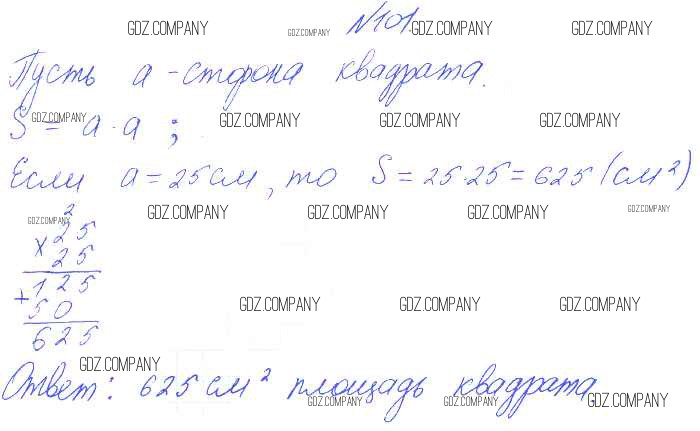 GDZ.COMPANY GDZ.COMPANY №101 GDZ.COMPANY GDZ.COMPANY
Пусть a - сторона квадрата.
GDZ.COMPANY GDZ.COMPANY GDZ.COMPANY GDZ.COMPANY
S = a · a ;
Если a = 25 см, то S = 25·25 = 625 (см²)
GDZ.COMPANY GDZ.COMPANY GDZ.COMPANY GDZ.COMPANY GDZ.COMPANY
2
× 25
25
+ 125
50
625
GDZ.COMPANY GDZ.COMPANY GDZ.COMPANY
GDZ.COMPANY
Ответ: 625 см² площадь квадрата
GDZ.COMPANY GDZ.COMPANY GDZ.COMPANY